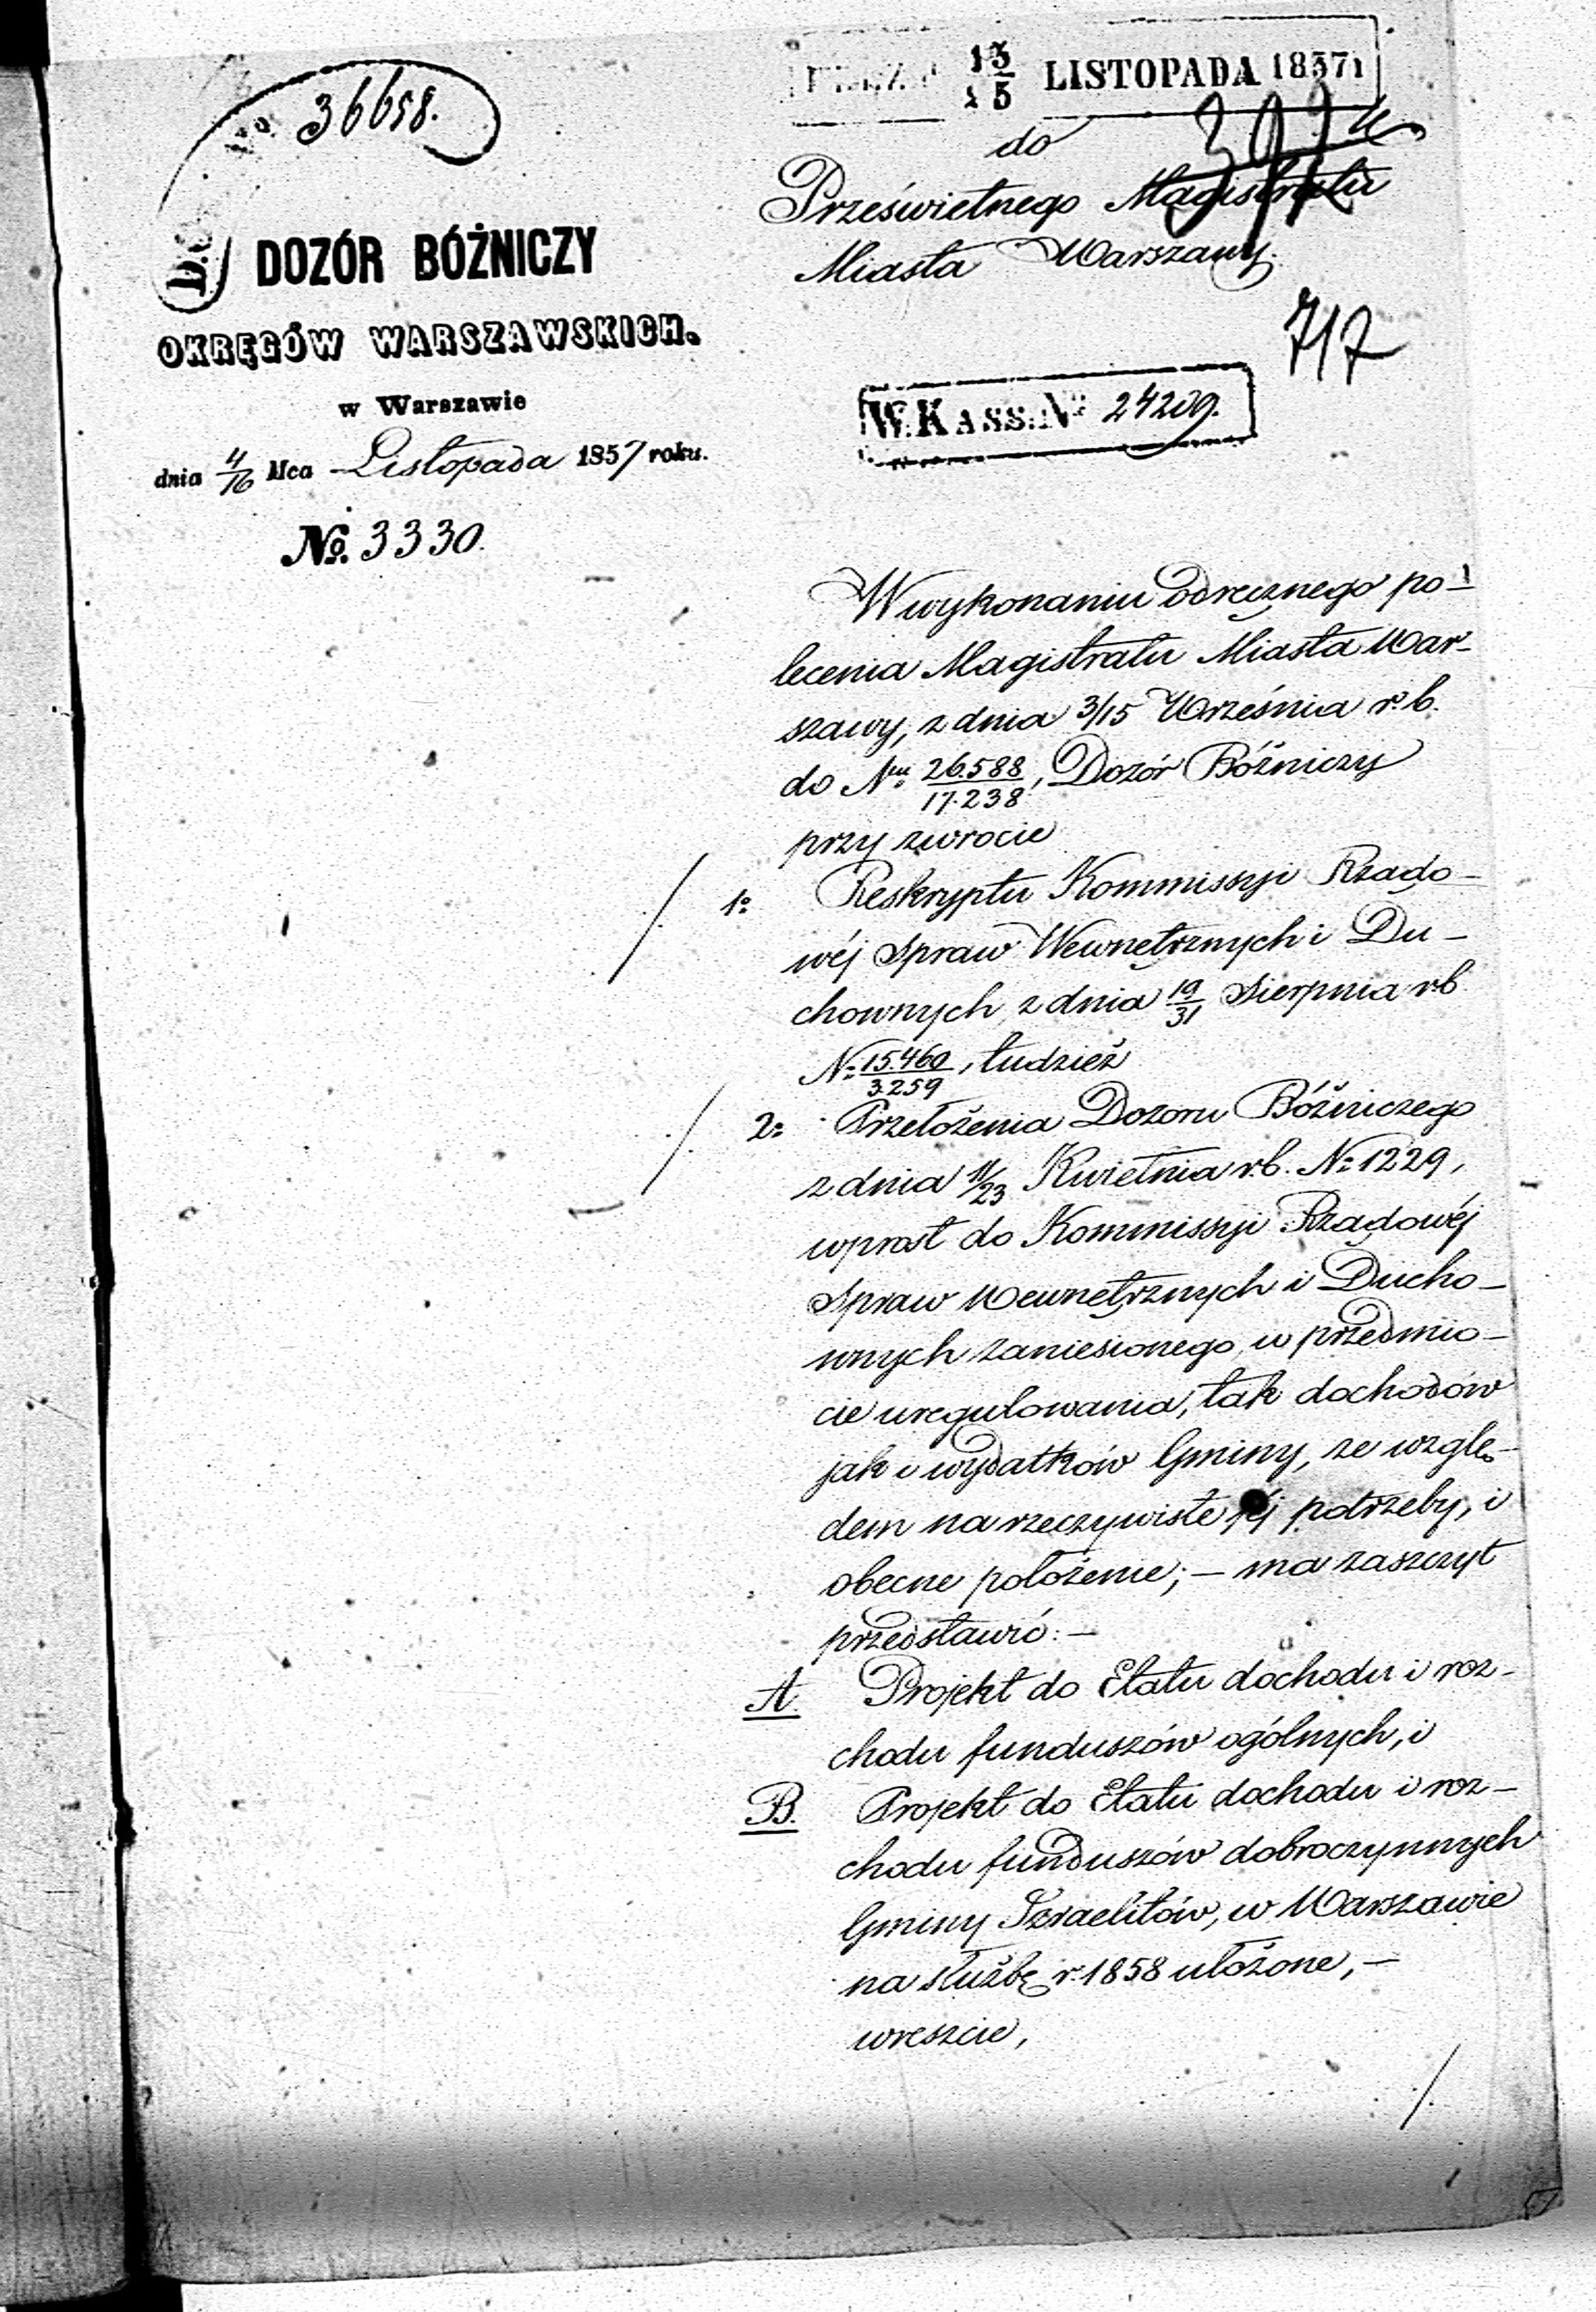 No 36658.
DOZÓR BÓŻNICZY
OKRĘGÓW WARSZAWSKICH.
w Warszawie
dnia 4/16 Mca Listopada 1857 roku.
No. 3330.
LISTOPADA 1857
do
Prześwietnego Magistratu
Miasta Warszawy.
717
W. KASS: No 24209.
W wykonaniu odręcznego po-
lecenia Magistratu Miasta War-
szawy, z dnia 3/15 Września r. b.
do Nru 26.588/17.238, Dozór Bóżniczy
przy zwrocie
1o Reskryptu Kommissyi Rządo-
wéj Spraw Wewnętrznych i Du-
chownych z dnia 19/31 Sierpnia r. b.
No 15.460/3.259, tudzież
2o Przełożenia Dozoru Bóżniczego
z dnia 11/23 Kwietnia r. b. No 1229,
wprost do Kommissyi Rządowéj
Spraw Wewnętrznych i Ducho-
wnych zaniesionego, w przedmio-
cie uregulowania, tak dochodów
jak i wydatków Gminy, ze wzglę-
dem na rzeczywiste jéj potrzeby, i
obecne położenie; – ma zaszczyt
przedstawić: –
A. Projekt do Etatu dochodu i roz-
chodu funduszów ogólnych, i
B. Projekt do Etatu dochodu i roz-
chodu funduszów dobroczynnych
Gminy Izraelitów, w Warszawie
na służbę r. 1858 ułożone, –
wreszcie,